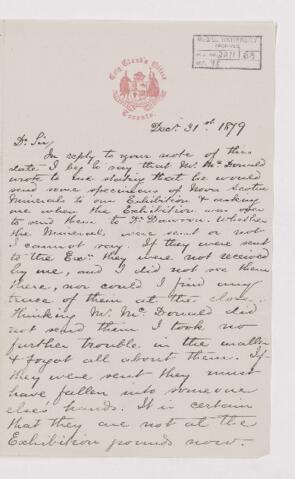 City Clerk's Office
Toronto
McGILL UNIVERSITY
ARCHIVES
Dec. 31st 1879
Dr Sir,
In reply to your note of this
date I beg to say that Mr. McDonald
wrote to me stating that he would
send some specimens of Nova Scotia
Minerals to our Exhibition & asking
me when the Exhibition was over
to send them to Dr Dawson. Whether
the Minerals were sent or not
I cannot say. If they were sent
to the Exn. they were not received
by me, and I did not see them
there, nor could I find any
trace of them at the close.
Thinking Mr. McDonald did
not send them I took no
further trouble in the matter
& forgot all about them. If
they were sent they must
have fallen into someone
else's hands. It is certain
that they are not at the
Exhibition grounds now.